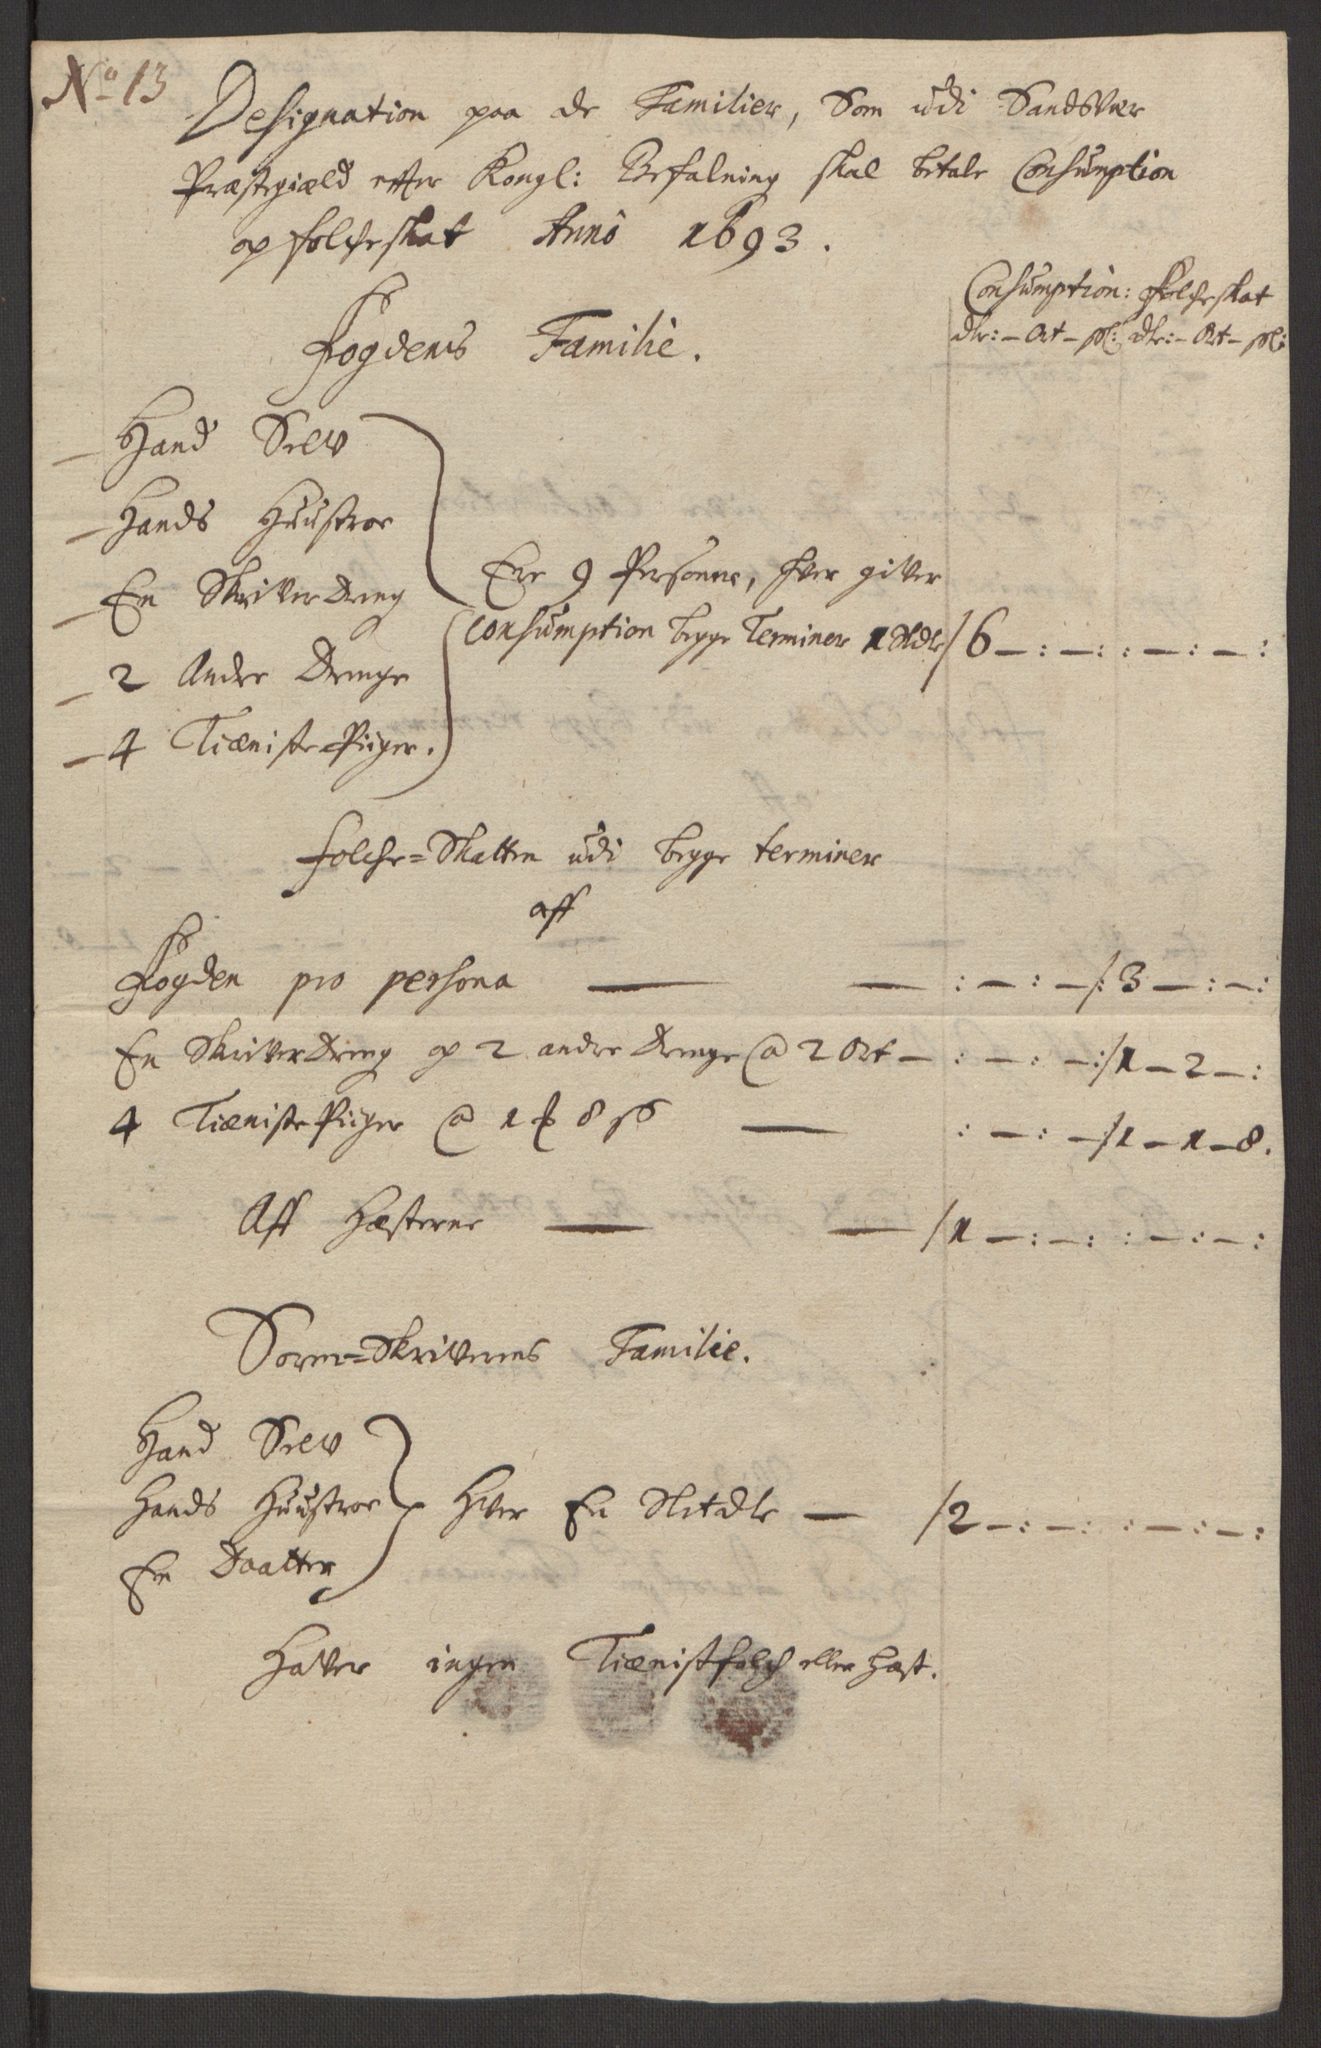 No 13
Designation paa de Familier, Som udi Sandsvær
Præstegiæld efter Kongl: Befalning skal betale Consumption
og folcheskat Anno 1693.
Consumption: Folcheskat
dlr: - Ort - sl: dlr: - Ort - sl:
Fogdens Familie.
Hand Selv
Hands Huustroe
En Skriver Dreng
2 Andre Drenge
4 Tieniste Piiger.
Ere 9 Personne, hver giver
Consumption begge Terminer 1 Rdlr /6 - : - : : - : - :
folche-Skatten udi begge terminer
aff
Fogden pro persona — — : - : - /: 3 - : - :
En Skriver Dreng og 2 andre Drenge @ 2 Ort - : - : - :/1 - 2 - :
4 Tieniste Piiger @ 1 ℔ 8 sß — : - : - :/1 - 1 - 8.
Aff Hæsterne — — /1 - : - : : - : - :
Soren-Skriverens Familie.
Hand Selv
Hands Huustroe
En Daatter
Hver En Sletdlr — /2 - : - : : - : - :
Haver ingen Tienistfolch eller hæst.